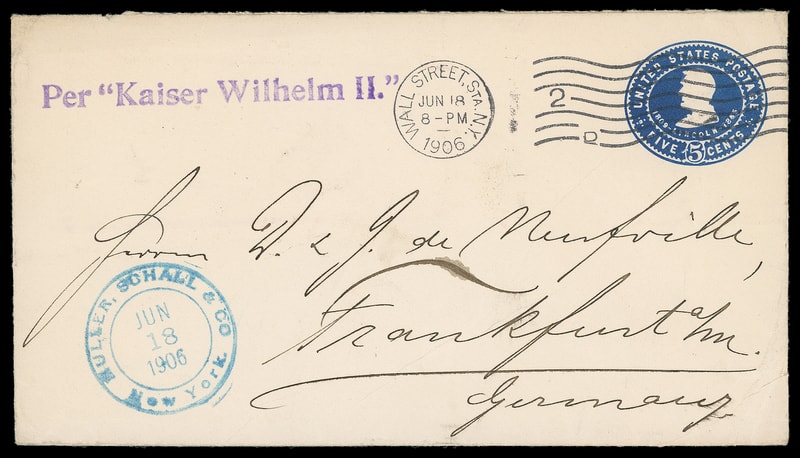 Per "Kaiser Wilhelm II."
WALL STREET, STA. N.Y.
JUN 18
8 - PM
1906
2
D
UNITED STATES POSTAGE
1809 - LINCOLN - 1865
FIVE 5 CENTS
Herrn D. & J. de Neufville,
Frankfurt a/m.
Germany
MULLER, SCHALL & CO
JUN
18
1906
New York.